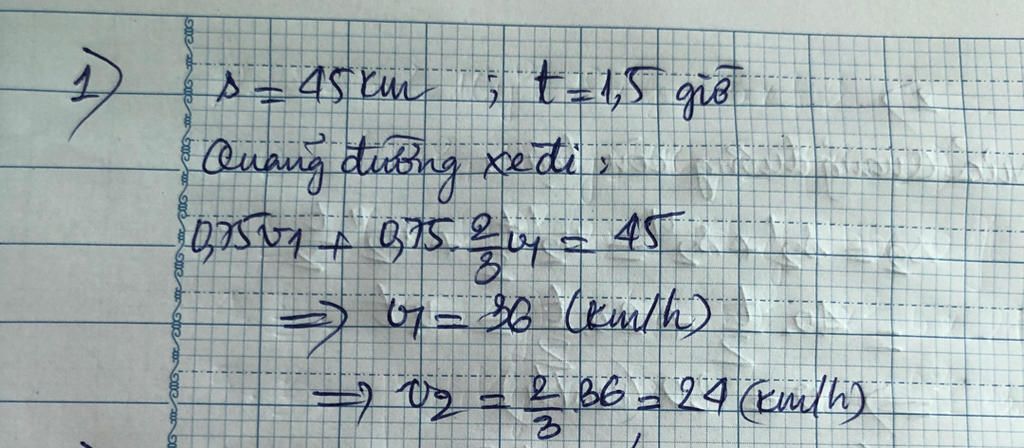 1) s = 45 km ; t = 1,5 giờ
Quãng đường xe đi :
0,75v1 + 0,75 . 2/3 v1 = 45
=> v1 = 36 (km/h)
=> v2 = 2/3 . 36 = 24 (km/h)